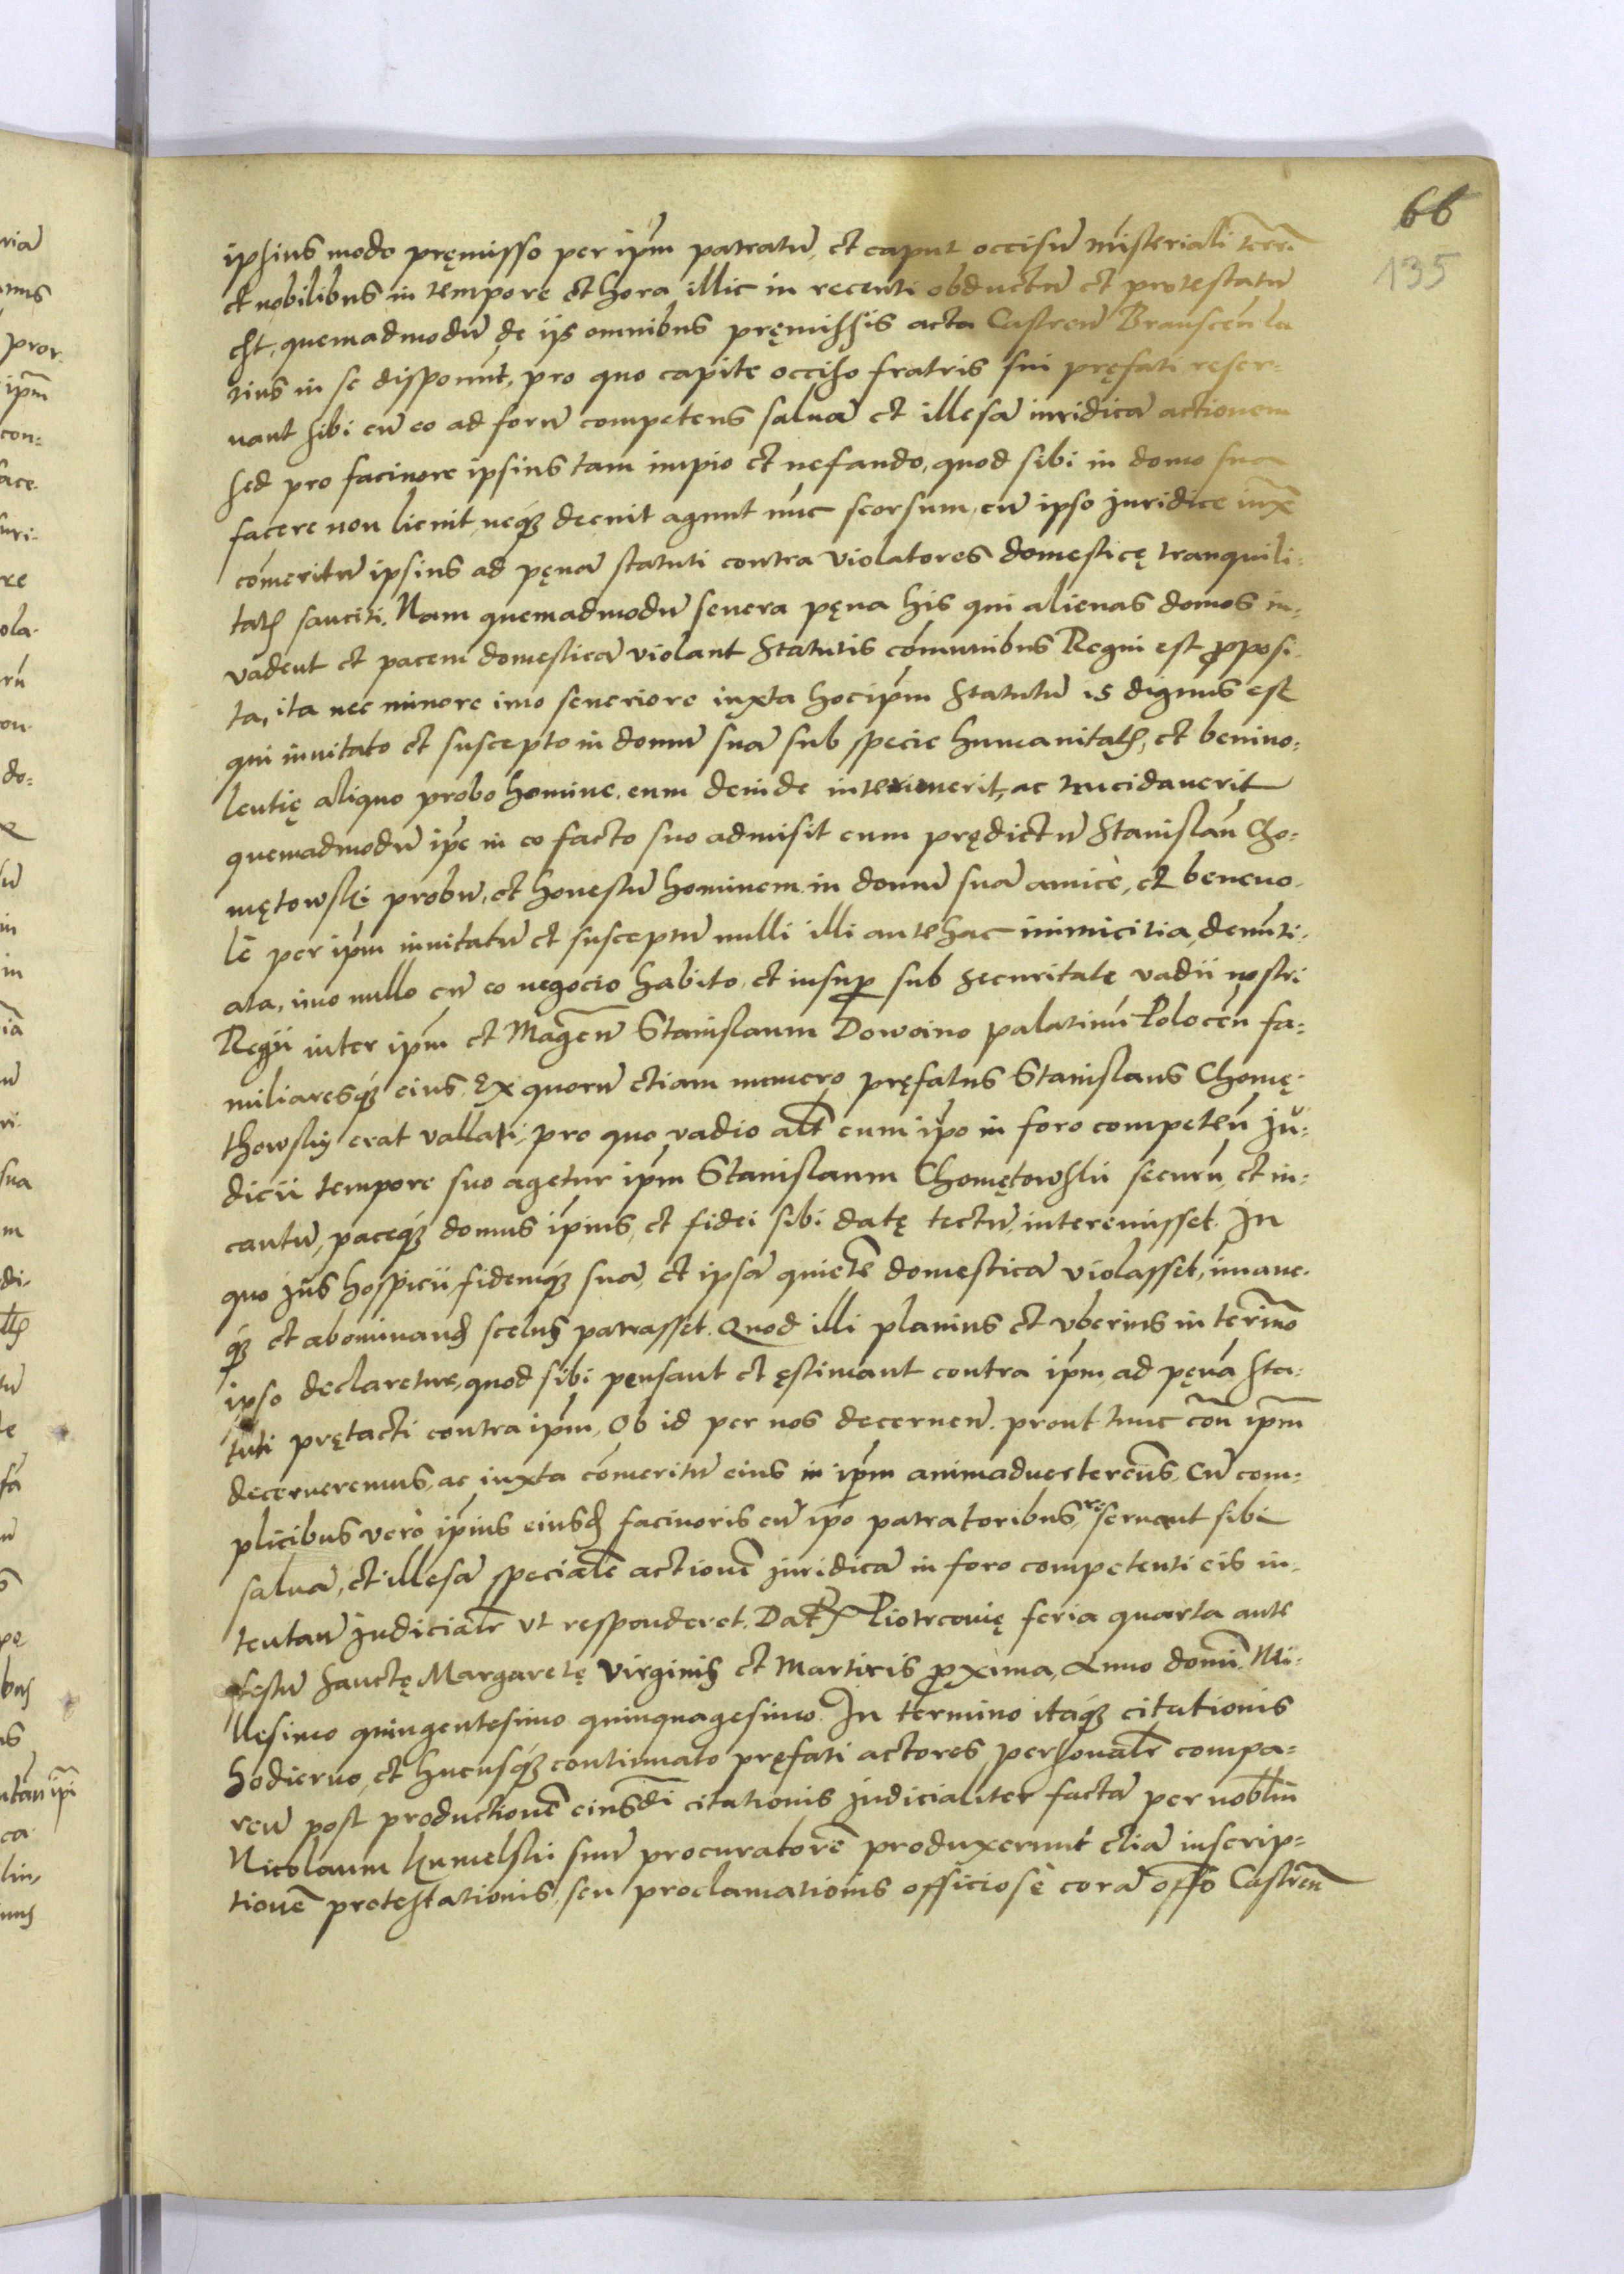 66
135
ipsius modo pręmisso per ipm̃ patratũ, et caput occisũ misteriali terr̃i
et nobilibus in tempore et hora illic in recenti obductũ et protestatũ
est, quemadmodũ de ijs omnibus pręmissis acta Castreñ Brauscen̄ la
tius in se disponũt, pro quo capite occiso fratris sui pręfati reser-
uant sibi cũ eo ad forũ competens saluã et illesã iuridicã actionem
sed pro facinore ipsius tam impio et nefando, quod sibi in domo sua
facere non licuit, neq́ꝫ decuit agunt nũc seorsum, cũ ipso Juridice iux̃
cõmeritũ ipsius ad pęnã statuti contra violatores domesticę tranquili-
tatꝭ sanciti. Nam quemadmodũ seuera pęna his qui alienas domos in-
vadent et pacem domesticã violant Statutis cõmunibus Regni est ꝓposi-
ta, ita nec minore imo seueriore iuxta hoc ipm̃ Statutũ is dignus est
qui inuitato et suscepto in domũ suã sub specie humanitatꝭ, et beniuo-
lentię aliquo probo homine, eum deinde interimerit, ac trucidauerit
quemadmodũ ipẽ in eo facto suo admisit cum prędictũ Stanislaũ Cho-
mętowski probũ, et honestũ hominem in domũ suã amicè, et beneuo-
lè per ipm̃ inuitatũ et susceptũ nulli illi antehac inimicitia, denũti-
ata, imo nullo cũ eo negocio habito, et insuꝑ sub securitate vadii nostri
Regii inter ipm̃ et Mag̃cũ Stanislaum Dowoino palatinũ Polocen̄ fa-
miliaresq́ꝫ eius. Ex quorũ etiam numero pręfatus Stanislaus Chomę-
thowsky erat vallati, pro quo vadio alt̃ cum ipõ in foro competeñ Ju-
dicii tempore suo agetur ipm̃ Stanislaum Chomętowskii securũ, et in-
cautũ, paceq́ꝫ domus ipĩus, et fidei sibi datę tectũ, interemisset. In
quo Jus hospicii, fidemq́ꝫ suã, et ipsã quietẽ domesticã violasset, imane-
q́ꝫ et abominandꝭ scelus patrasset. Quod illi planius et vberius in terĩno
ipso declaretur, quod sibi pensant et ęstimant contra ipm̃, ad pęnã sta-
tuti prętacti contra ipm̃, Ob id per nos decerneñ. prout tunc coñ ipm̃
decerneremus, ac iuxta cõmeritũ eius in ipm̃ animaduerterem̃s, Cũ com-
plicibus verò ipĩus eiusdꝭ facinoris cũ ipõ patratoribus, reseruant sibi
saluã, et illesã specialẽ actionẽ Juridicã in foro competenti eis in-
tentañ Judicialr̃ vt responderet. Datꝭ Piotrcouię feria quarta ante
festũ Sanctę Margaretę Virginis et Martiris ꝓxima, Anno domĩ. Mi-
llesimo quingentesimo quinquagesimo. In termino itaq́ꝫ citationis
hodierno, et hucusq́ꝫ continuato pręfati actores, personalr̃ compa-
reñ post productionẽ eiusd̃i citationis Judicialiter factã per nobl̃m
Nicolaum Humelskii suũ procuratorẽ produxerunt etiã inscrip-
tionẽ protestationis, seu proclamationis officiosè corã offõ Castreñ